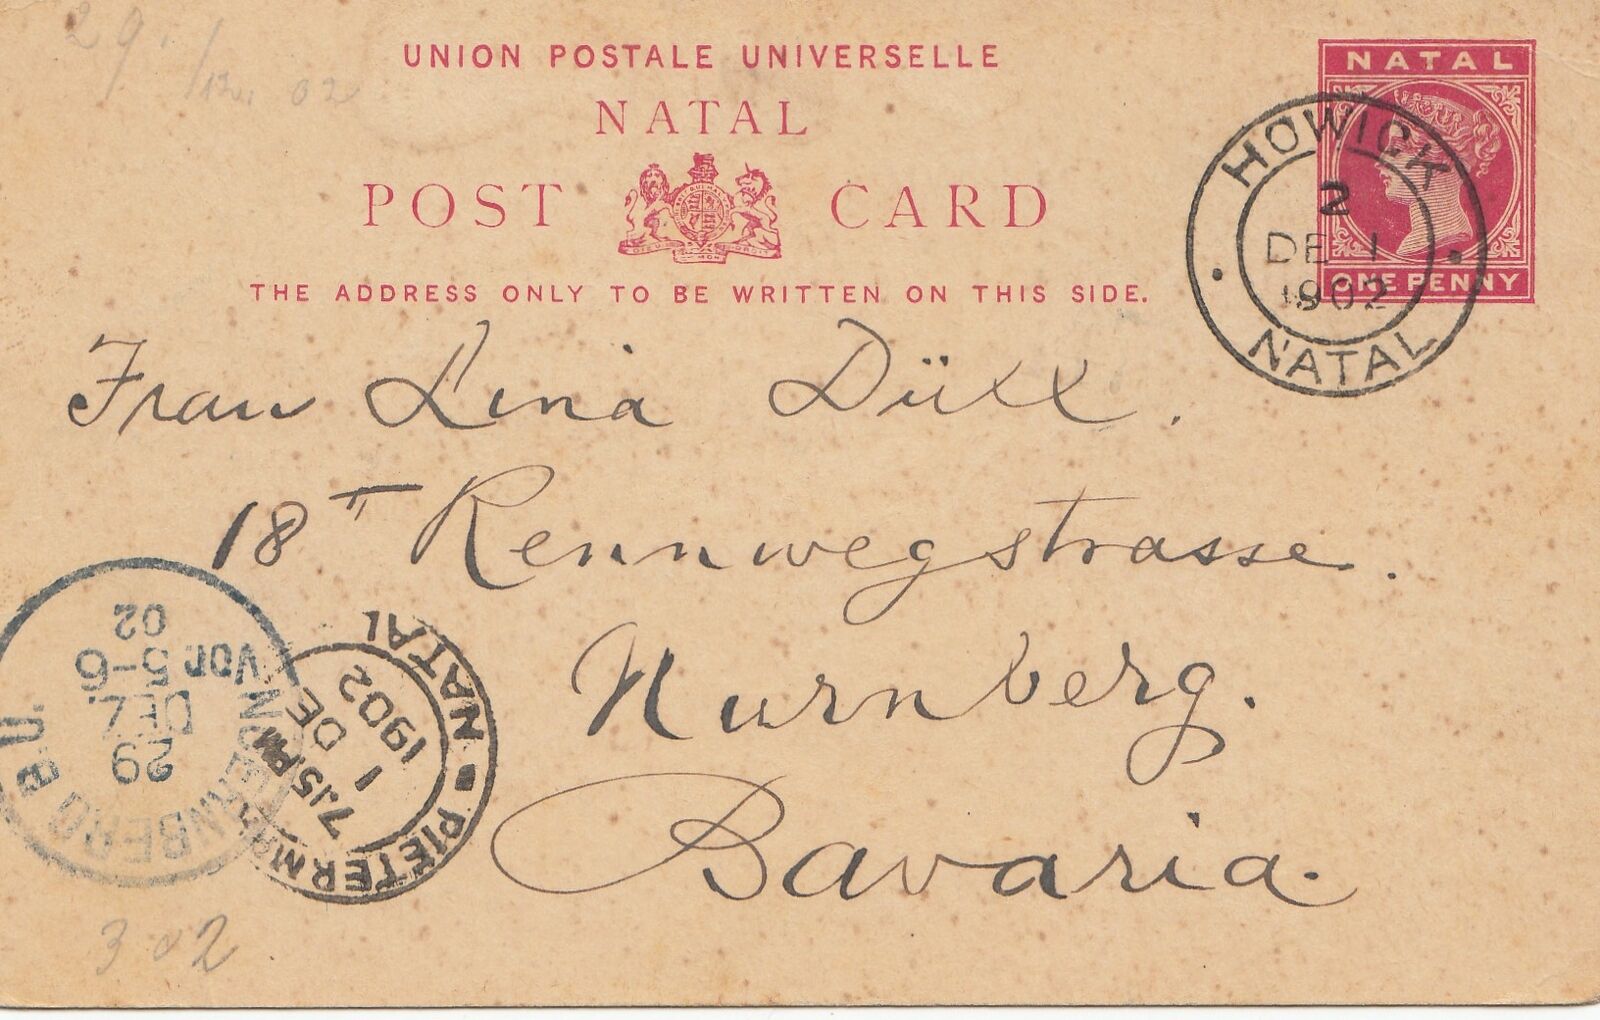 29. / 12. 02
UNION POSTALE UNIVERSELLE
NATAL
POST CARD
THE ADDRESS ONLY TO BE WRITTEN ON THIS SIDE.
NATAL
ONE PENNY
HOWICK
2
DE 1
1902
NATAL
Frau Lina Düll.
18 Rennwegstrasse.
Nurnberg.
Bavaria.
NUERNBERG B.U.
29
DEZ.
Vor. 5-6
02
NATAL
7 15 PM
1 DE
1902
3 02